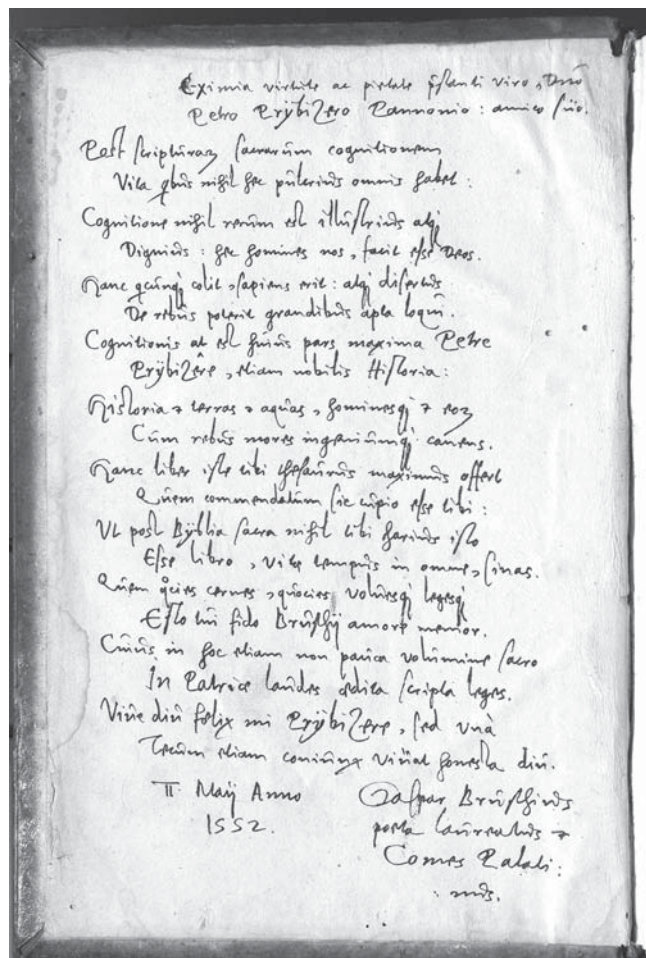 Eximia virtute ac pietate p̃stanti viro, Dño
Petro Prÿbiʒero Pannonio: amico suo.
Post scripturaꝝ sacrarum cognitionem
Vita qbus nihil hec pulcrius omnis habet:
Cognitione nihil rerum est illustrius atqꝫ
Dignius: hec homines nos, facit esse Deos.
Hanc qcunqꝫ colit, sapiens erit: atqꝫ disertus
De rebus poterit grandibus apta loqui.
Cognitionis at est huius pars maxima Petre
Prÿbiʒêre, etiam nobilis Historia:
Historia & terras & aquas, hominesqꝫ & eoꝝ
Cum rebus mores ingeniumqꝫ canens.
Hanc liber iste tibi thesaurus maximus offert
Quem commendatum sic cupio esse tibi:
Vt post Byblia sacra nihil tibi charius isto
Esse libro, vite tempus in omne, sinas.
Quem qcies cernes, quocies voluesqꝫ legesqꝫ
Esto tui fido Bruschij amore memor.
Cuius in hoc etiam non pauca volumine sacro
In Patrice laudes ædita scripta leges.
Viue diu felix mi Prÿbiʒere, sed vnà
Tecum etiam coniunx viuat honesta diu.
II Maij Anno
1552.
Gaspar Bruschius
poeta laureatus &
Comes Palati:
: nus.